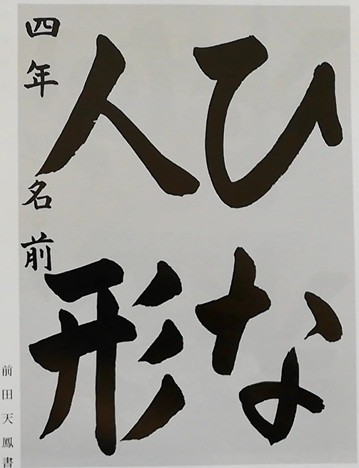 ひな
人形
四年 名前
前田天鳳書